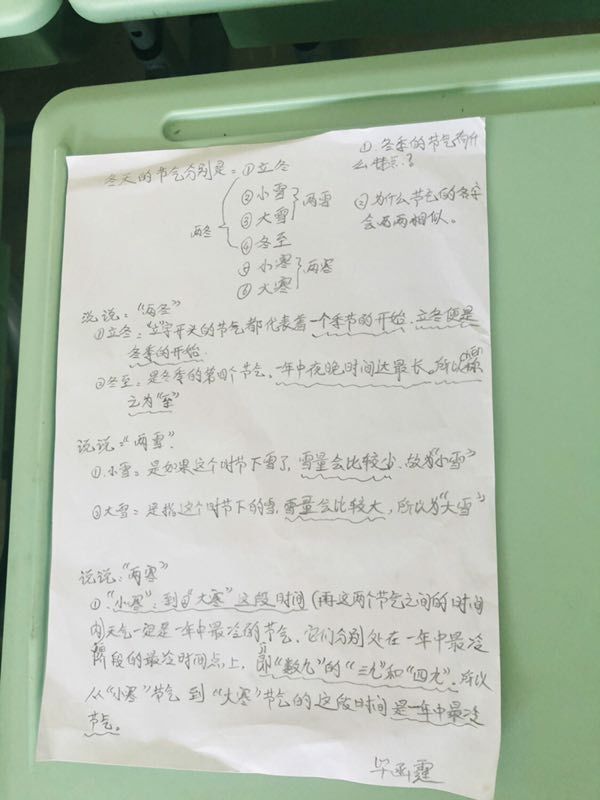 冬天的节气分别是：①立冬
②小雪
③大雪
两雪
④冬至
两冬
⑤小寒
⑥大寒
两寒
①.冬季的节气有什
么特点？
②为什么节气的名字
会两两相似。
说说："两冬"
①立冬："立"字开头的节气都代表着一个季节的开始.立冬便是
冬季的开始.
②冬至：是冬季的第四个节气、一年中夜晚时间达最长。所以称
chēn
之为"至"
说说："两雪".
①.小雪：是如果这个时节下雪了，雪量会比较少.故为"小雪"
②大雪：是指这个时节下的雪，雪量会比较大，所以为"大雪"
说说："两寒"
①."小寒"：到"大寒"这段时间（再这两个节气之间的时间
内天气一定是一年中最冷的节气、它们分别处在一年中最冷
阶段的最冷时间点上，即"数九"的"三九"和"四九"，所以
从"小寒"节气到"大寒"节气的这段时间是一年中最冷
节气。
毕函霆